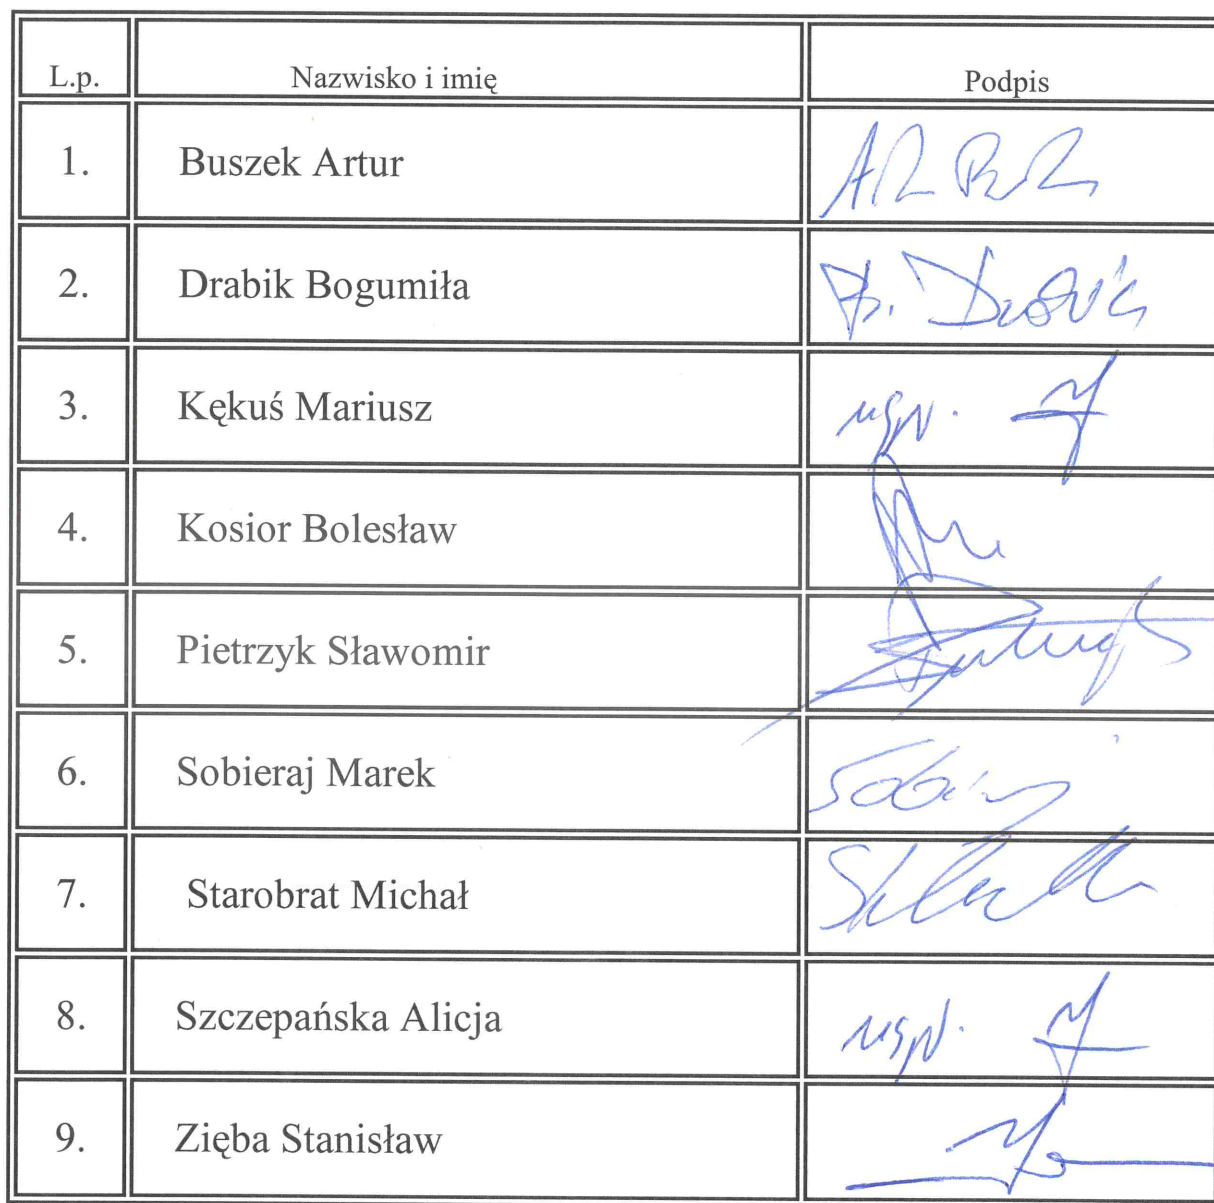 L.p. Nazwisko i imię Podpis
1. Buszek Artur
2. Drabik Bogumiła B. Drabik
3. Kękuś Mariusz usp.
4. Kosior Bolesław
5. Pietrzyk Sławomir
6. Sobieraj Marek
7. Starobrat Michał
8. Szczepańska Alicja usp.
9. Zięba Stanisław